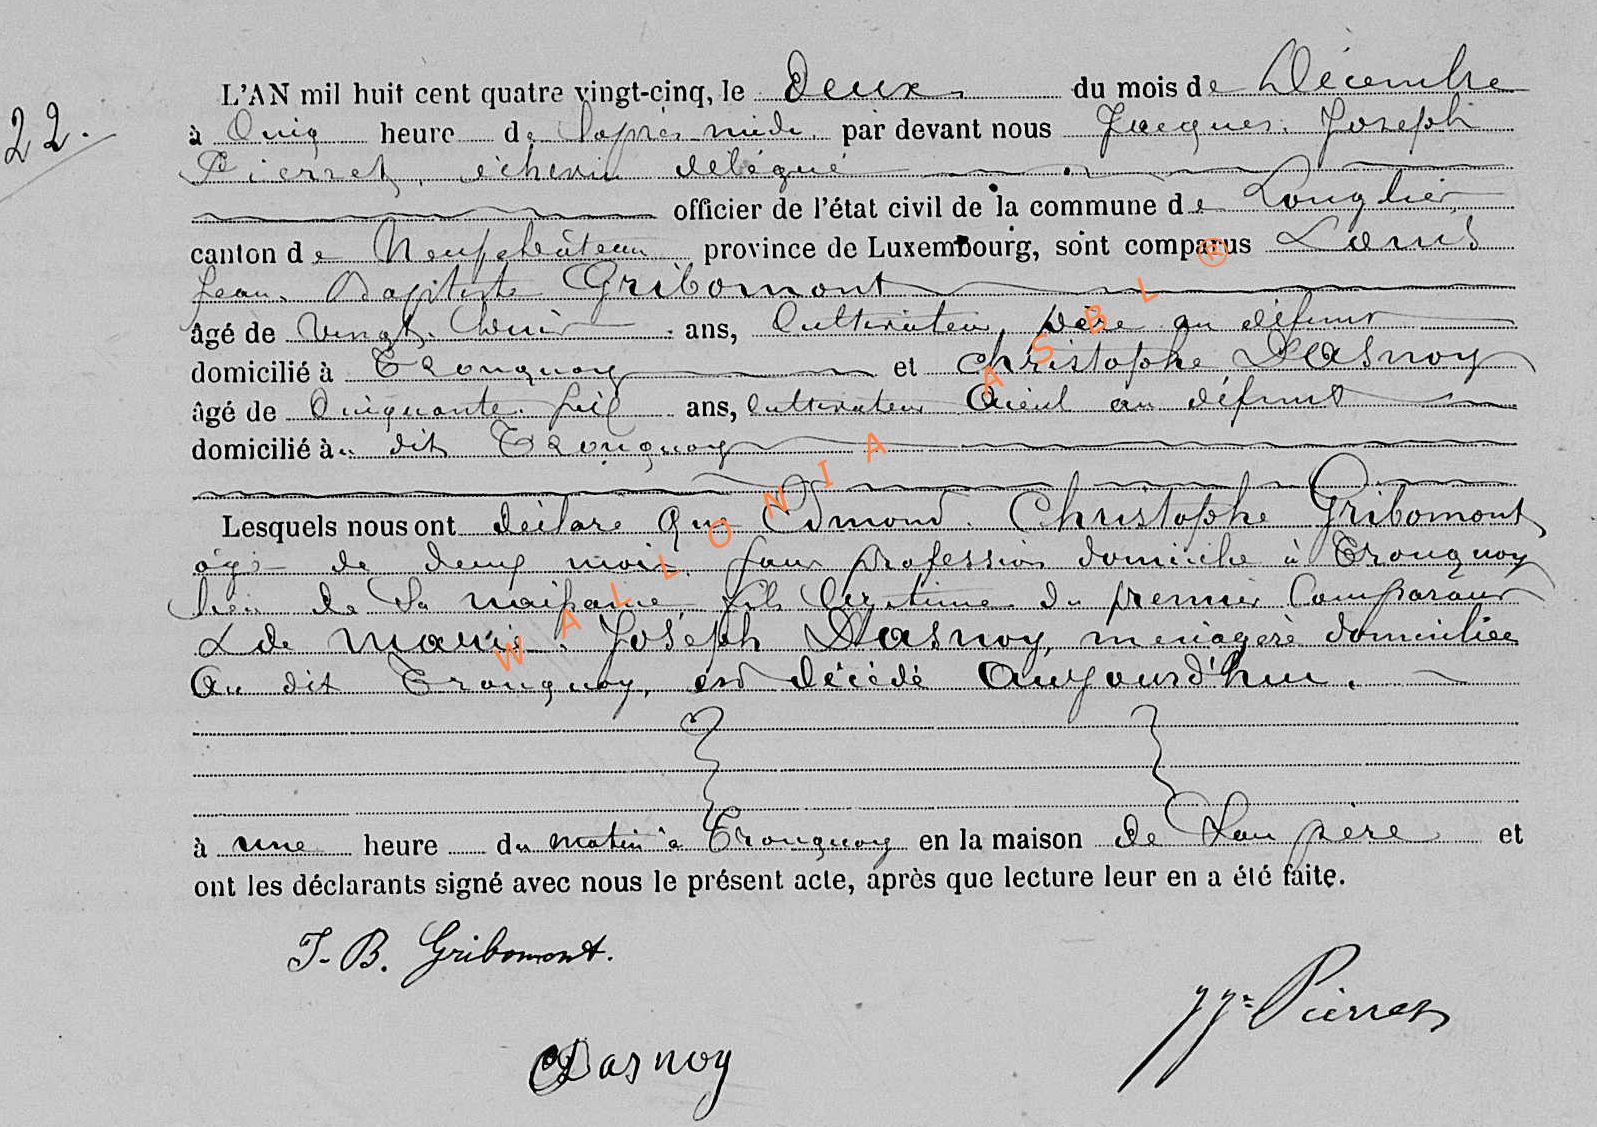 22.
L'AN mil huit cent quatre vingt-cinq, le deux du mois de Décembre
à Cinq heure de l'après midi par devant nous Jacques Joseph
Pierret, échevin délégué
officier de l'état civil de la commune de Longlier
canton de Neufchâteau province de Luxembourg, sont comparus Louis
Jean Baptiste Gribomont
âgé de vingt huit ans, Cultivateur, père au défunt
domicilié à Tronquoy et Christophe Dasnoy
âgé de Cinquante six ans, Cultivateur Aïeul au défunt
domicilié à dit Tronquoy
Lesquels nous ont déclaré que Edmond Christophe Gribomont
âgé de deux mois, sans profession domicilié à Tronquoy
lieu de sa naissance, fils légitime du premier Comparant
& de Marie Joseph Dasnoy, ménagère domiciliée
au dit Tronquoy, est décédé aujourd'hui.
à une heure du matin à Tronquoy en la maison de son père et
ont les déclarants signé avec nous le présent acte, après que lecture leur en a été faite.
J-B. Gribomont.
JJ= Pierret
CDasnoy
WALLONIA ASBL ®